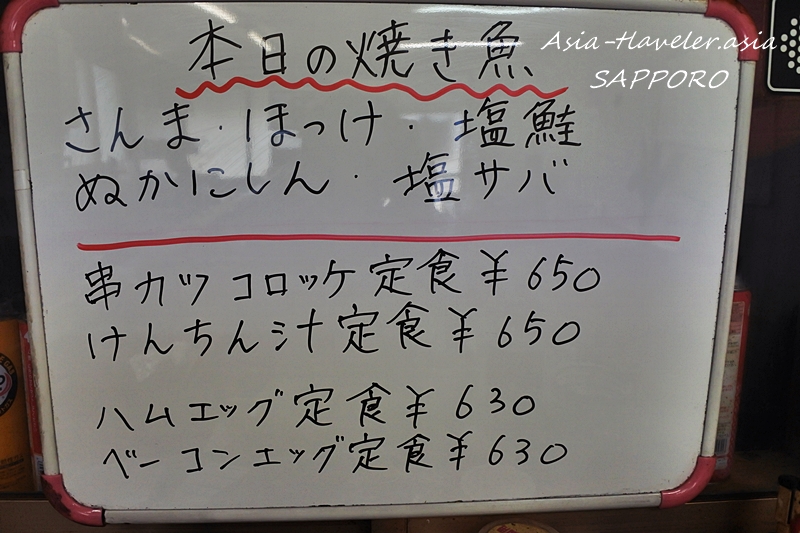 本日の焼き魚
Asia-Traveler.asia
SAPPORO
さんま・ほっけ・塩鮭
ぬかにしん・塩サバ
串カツコロッケ定食¥650
けんちん汁定食¥650
ハムエッグ定食¥630
ベーコンエッグ定食¥630